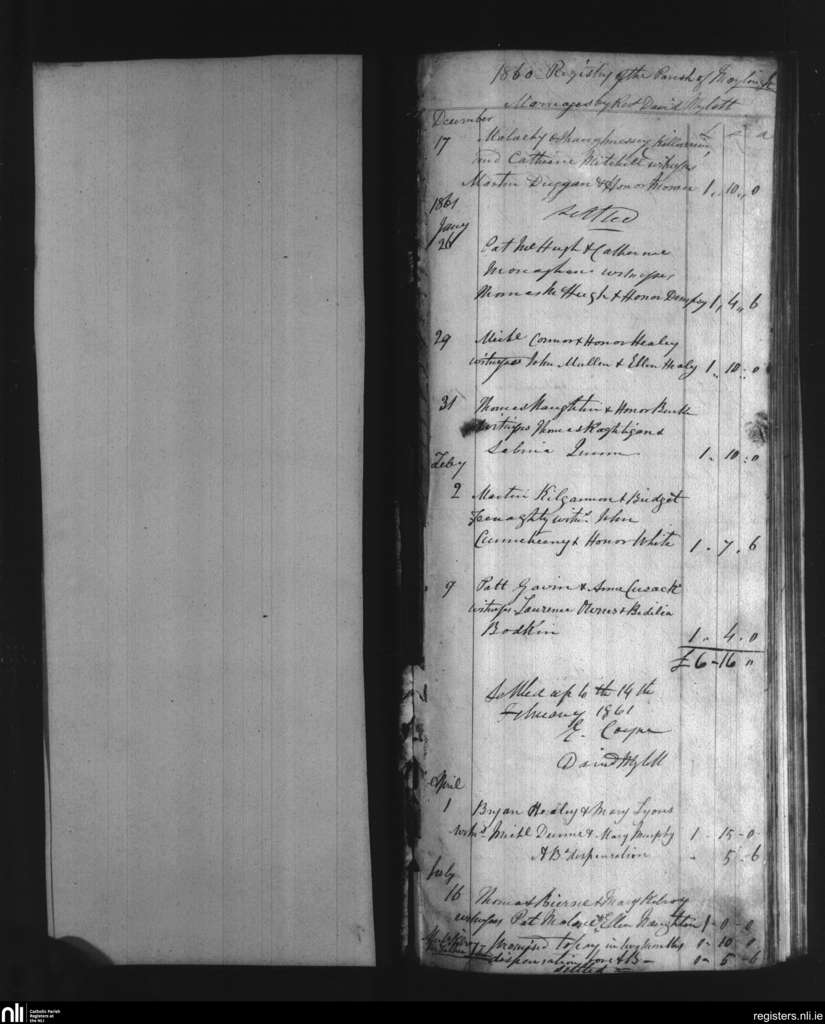 1860 Registry of the Parish of Moylough
Marriages by Revd David Mylott
December
£ s d
17 Malachy O Shaughnessy
and Catherine Mitchell witnesses
Martin Duggan & Honor 1 „ 10 „ 0
1861
settled
Jany
26 Pat McHugh & Catherine
Monaghan witnesses
Thomas McHugh & Honor Dempsy 1 „ 4 „ 6
29 Michl Connor & Honor Healey
witnesses John Mullen & Ellen Healy 1 „ 10 „ 0
31 Thomas Naughten & Honor Burke
witness Thomas &
Sabina Quinn 1 „ 10 „ 0
Feby
2 Martin Kilgannon & Bridget
Fenaghty witns. John
Cunneheeny & Honor White 1 „ 7 „ 6
9 Patt Gavin & Anne Cusack
witnesses Laurence & Bidilia
Bodkin 1 „ 4 „ 0
£6 – 16 „
Settled up to the 14th
February 1861
Coyne
David Mylott
April
1 Bryan Healey & Mary Lyons
witns Michl Dunne & Mary Murphy 1 – 15 – 0
A Bs dispensation - 5 – 6
July
16 Thomas Bierne & Mary Kilroy
witnesses Pat & Ellen Naughten 1 – 0 – 0
promised to pay in two months 0 – 10 0
dispensation B – 0 – 5 – 6
settled
nli
Catholic Parish
Registers at
the NLI
registers.nli.ie